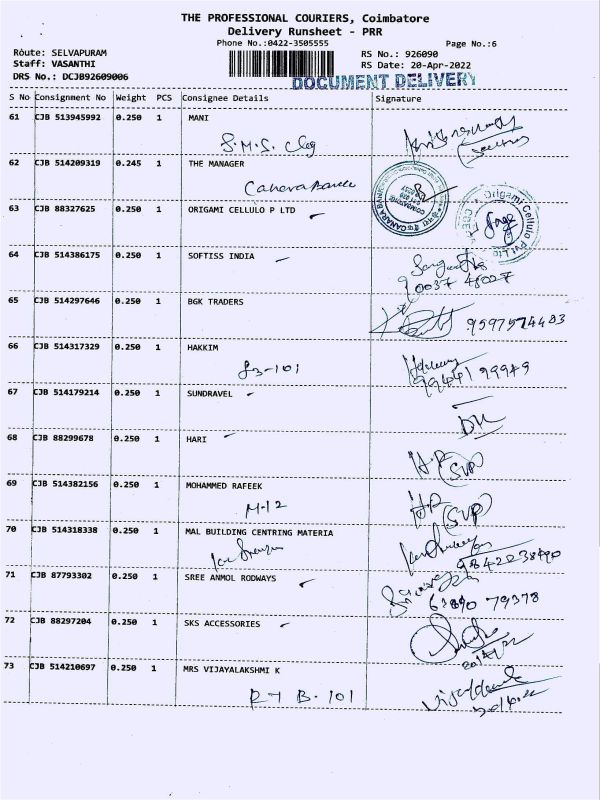 THE PROFESSIONAL COURIERS, Coimbatore
Delivery Runsheet - PRR
Phone No.:0422-3505555 Page No.:6
Route: SELVAPURAM RS No.: 926090
Staff: VASANTHI RS Date: 20-Apr-2022
DRS No.: DCJB92609006 DOCUMENT DELIVERY
S No Consignment No Weight PCS Consignee Details Signature
61 CJB 513945992 0.250 1 MANI
S.M.S.
62 CJB 514209319 0.245 1 THE MANAGER
Canara CANARA BANK
63 CJB 88327625 0.250 1 ORIGAMI CELLULO P LTD Origami Cellulo Pvt Ltd
64 CJB 514386175 0.250 1 SOFTISS INDIA
65 CJB 514297646 0.250 1 BGK TRADERS
9597574483
66 CJB 514317329 0.250 1 HAKKIM
101 99441 99949
67 CJB 514179214 0.250 1 SUNDRAVEL
68 CJB 88299678 0.250 1 HARI
(SVP)
69 CJB 514382156 0.250 1 MOHAMMED RAFEEK
M-12 (SVP)
70 CJB 514318338 0.250 1 MAL BUILDING CENTRING MATERIA
71 CJB 87793302 0.250 1 SREE ANMOL RODWAYS
63890 79378
72 CJB 88297204 0.250 1 SKS ACCESSORIES
73 CJB 514210697 0.250 1 MRS VIJAYALAKSHMI K
B-101